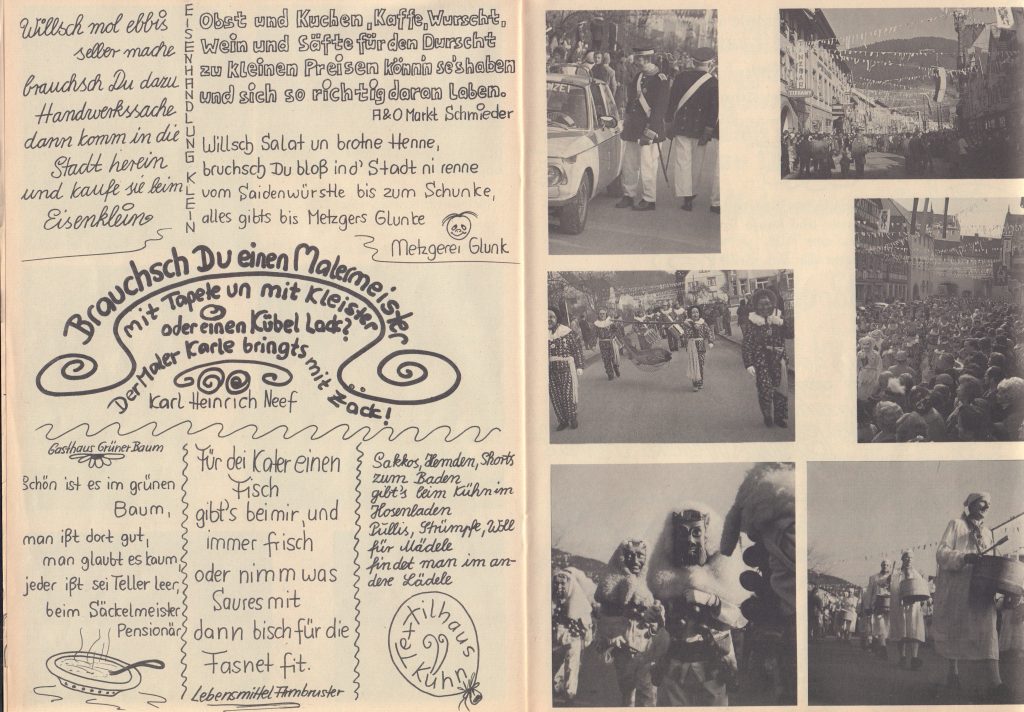 Willsch mol ebbis
selber mache
brauchsch Du dazu
Handwerkssache
dann komm in die
Stadt herein
und kaufe sie beim
Eisenklein
EISENHANDLUNG KLEIN
Obst und Kuchen, Kaffe, Wurscht,
Wein und Säfte für den Durscht
zu kleinen Preisen könn'n se's haben
und sich so richtig daran laben.
A&O Markt Schmieder
Willsch Salat un brotne Henne,
bruchsch Du bloß in d' Stadt ni renne
vom Saidenwürstle bis zum Schunke,
alles gibts bis Metzgers Glunke
Metzgerei Glunk
Brauchsch Du einen Malermeister
mit Tapete un mit Kleister
oder einen Kübel Lack?
Der Maler Karle bringts mit Zack!
Karl Heinrich Neef
Gasthaus Grüner Baum
Schön ist es im grünen
Baum,
man ißt dort gut,
man glaubt es kaum,
jeder ißt sei Teller leer,
beim Säckelmeister
Pensionär
Für dei Kater einen
Fisch
gibt's bei mir, und
immer frisch
oder nimm was
Saures mit
dann bisch für die
Fasnet fit.
Lebensmittel Armbruster
Sakkos, Hemden, Shorts
zum Baden
gibt's beim Kühn im
Hosenladen
Pullis, Strümpfe, Woll
für Mädele
findet man im an-
dere Lädele
Textilhaus
Kühn